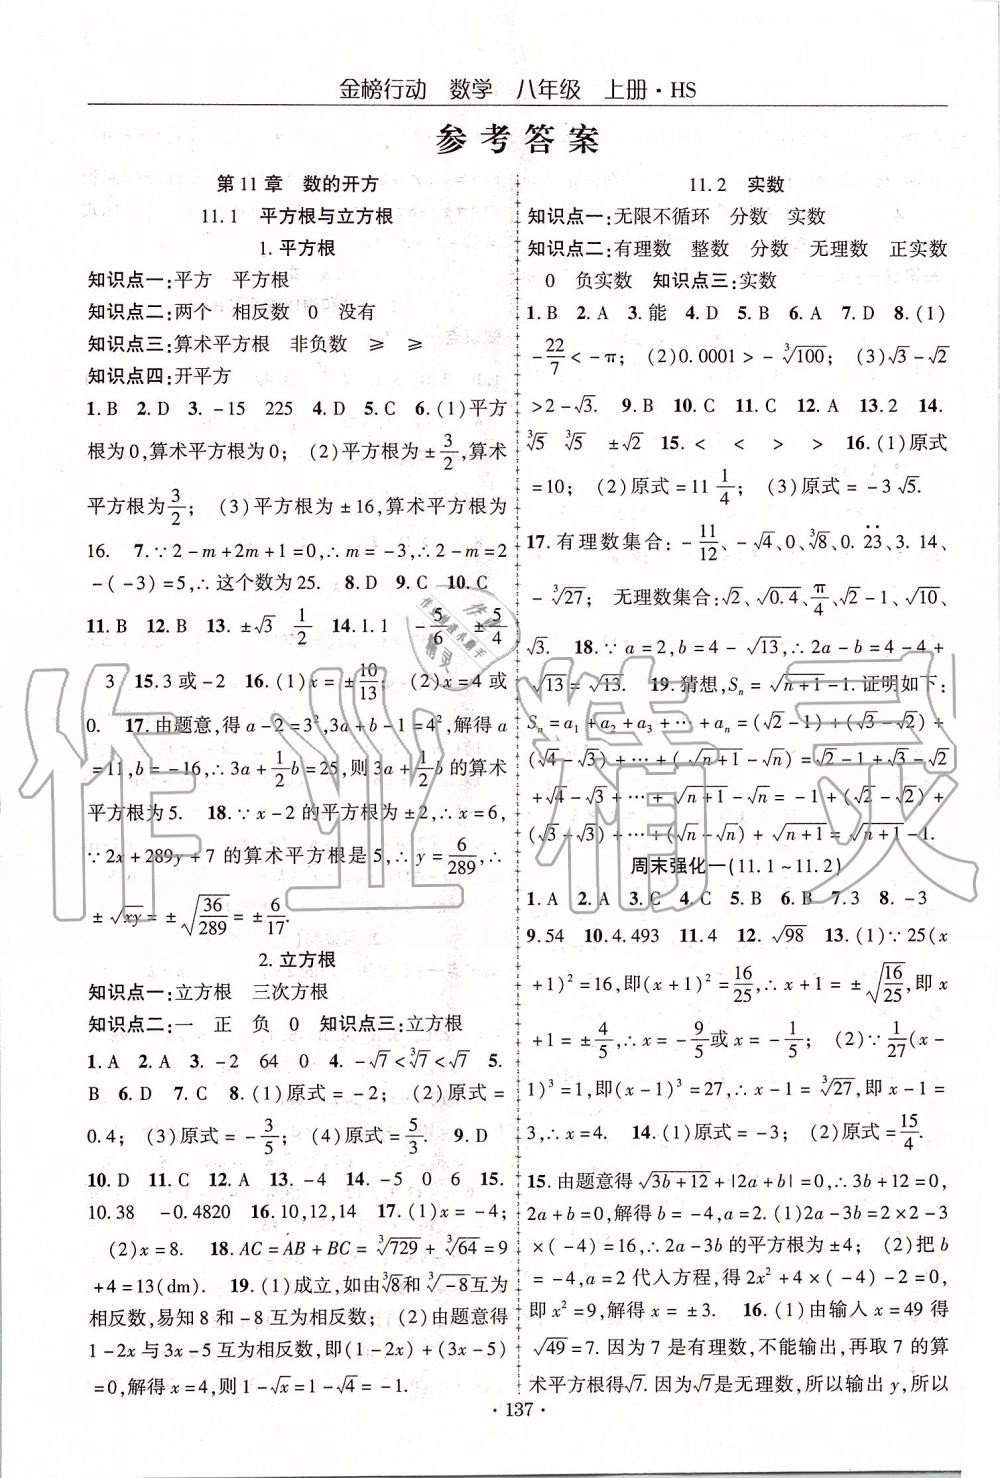 金榜行动　数学　八年级　上册·HS
参考答案
第11章　数的开方
11.1　平方根与立方根
1.平方根
知识点一:平方　平方根
知识点二:两个　相反数　0　没有
知识点三:算术平方根　非负数　≥　≥
知识点四:开平方
1.B　2.D　3.-15　225　4.D　5.C　6.(1)平方
根为0,算术平方根为0；(2)平方根为±3/2,算术
平方根为3/2；(3)平方根为±16,算术平方根为
16.　7.∵2-m+2m+1=0,∴m=-3,∴2-m=2
-(-3)=5,∴这个数为25.　8.D　9.C　10.C
11.B　12.B　13.±√3　1/2　14.1.1　-5/6　±5/4
3　15.3或-2　16.(1)x=±10/13；(2)x=4或
0.　17.由题意,得a-2=3²,3a+b-1=4²,解得a
=11,b=-16,∴3a+1/2b=25,则3a+1/2b的算术
平方根为5.　18.∵x-2的平方根为±2,∴x=6,
∵2x+289y+7的算术平方根是5,∴y=6/289,∴
±√xy=±√(36/289)=±6/17.
2.立方根
知识点一:立方根　三次方根
知识点二:一　正　负　0　知识点三:立方根
1.A　2.A　3.-2　64　0　4.-√7<∛7<√7　5.
B　6.D　7.C　8.(1)原式=-2；(2)原式=
0.4；(3)原式=-3/5；(4)原式=5/3.　9.D
10.D　11.C　12.A　13.-4　14.-5　0　6　15.
10.38　-0.4820　16.10,12,14　17.(1)x=-4；
(2)x=8.　18.AC=AB+BC=∛729+∛64=9
+4=13(dm).　19.(1)成立,如由∛8和∛-8互为
相反数,易知8和-8互为相反数；(2)由题意得
1-2x与3x-5互为相反数,即(1-2x)+(3x-5)
=0,解得x=4,则1-√x=1-√4=-1.
11.2　实数
知识点一:无限不循环　分数　实数
知识点二:有理数　整数　分数　无理数　正实数
0　负实数　知识点三:实数
1.B　2.A　3.能　4.D　5.B　6.A　7.D　8.(1)
-22/7<-π；(2)0.0001>-∛100；(3)√3-√2
>2-√3.　9.B　10.C　11.C　12.A　13.2　14.
∛5　∛5　±√2　15.<　<　>　>　16.(1)原式
=10；(2)原式=11 1/4；(3)原式=-3√5.
17.有理数集合:-11/12、-√4、0、∛8、0.2̇3̇、3.14、
-∛27；无理数集合:√2、√0.4、π/4、√2-1、√10、
√3.　18.∵a=2,b=4-√13,∴2a-b=4-4+
√13=√13.　19.猜想,Sₙ=√n+1-1.证明如下:
Sₙ=a₁+a₂+a₃+…+aₙ=(√2-1)+(√3-√2)+
(√4-√3)+…+(√n+1-√n)=√2-1+√3-√2
+√4-√3+…+√n+1-√n=-1+(√2-√2)+
(√3-√3)+…+(√n-√n)+√n+1=√n+1-1.
周末强化一(11.1~11.2)
1.A　2.A　3.C　4.C　5.B　6.B　7.3　8.-3
9.54　10.4.493　11.4　12.√98　13.(1)∵25(x
+1)²=16,即(x+1)²=16/25,∴x+1=±√(16/25),即x
+1=±4/5,∴x=-9/5或x=-1/5；(2)∵1/27(x-
1)³=1,即(x-1)³=27,∴x-1=∛27,即x-1=
3,∴x=4.　14.(1)原式=-3；(2)原式=15/4.
15.由题意得√3b+12+|2a+b|=0,∴3b+12=0,
2a+b=0,解得b=-4,a=2.(1)2a-3b=2×2-3
×(-4)=16,∴2a-3b的平方根为±4；(2)把b
=-4,a=2代入方程,得2x²+4×(-4)-2=0,
即x²=9,解得x=±3.　16.(1)由输入x=49得
√49=7.因为7是有理数,不能输出,再取7的算
术平方根得√7.因为√7是无理数,所以输出y,所以
·137·
作业精灵